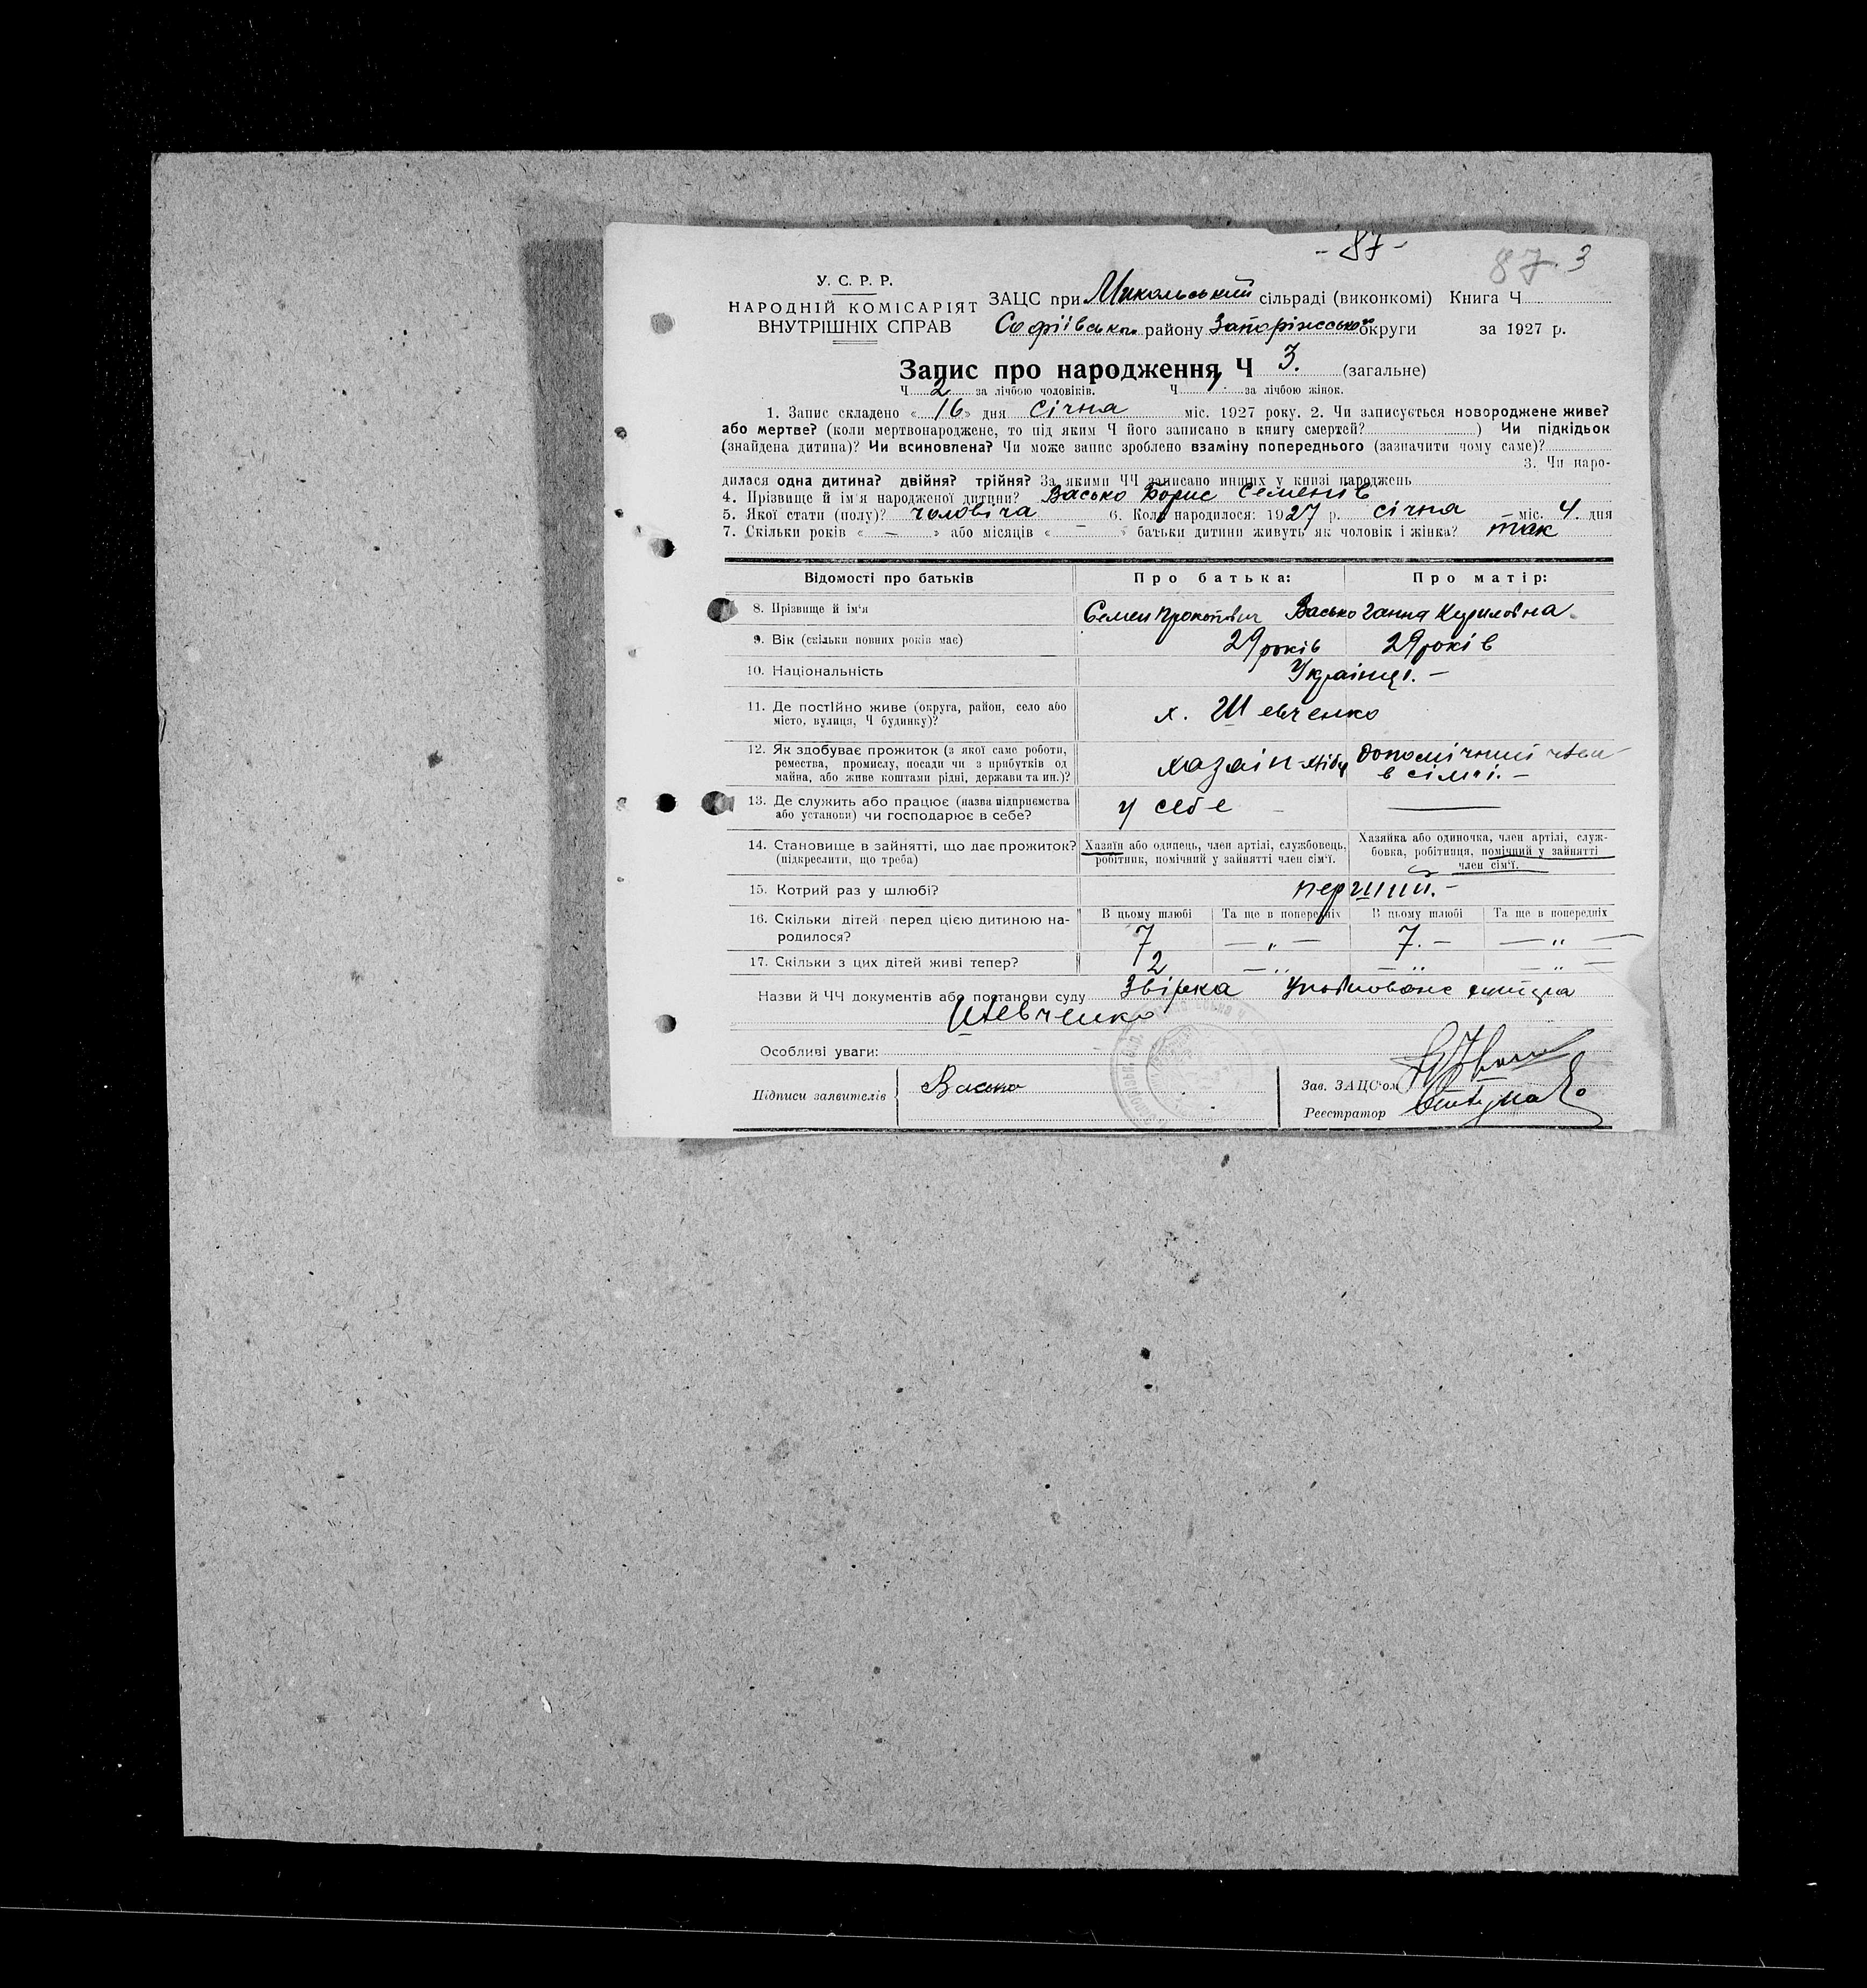 - 87 -
87. 3
У. С. Р. Р.
НАРОДНІЙ КОМІСАРІЯТ
ВНУТРІШНІХ СПРАВ
ЗАЦС при Микольський сільраді (виконкомі) Книга Ч
Софіївськ району Запоріжської округи за 1927 р.
Запис про народження, Ч 3. (загальне)
Ч 2 за лічбою чоловіків. Ч 1 за лічбою жінок.
1. Запис складено «16» дня Січня міс. 1927 року. 2. Чи записується новороджене живе?
або мертве? (коли мертвонароджене, то під яким Ч його записано в книгу смертей? ) Чи підкідьок
(знайдена дитина)? Чи всиновлена? Чи може запис зроблено взаміну попереднього (зазначити чому саме)?
3. Чи наро-
дилася одна дитина? двійня? трійня? За якими ЧЧ записано инших у книзі народжень
4. Прізвище й ім'я народженої дитини? Васько Борис Семенів
5. Якої стати (полу)? чоловіча 6. Коли народилося: 1927 р. січня міс. 4. дня
7. Скільки років « — » або місяців « — » батьки дитини живуть як чоловік і жінка? так
Відомості про батьків Про батька: Про матір:
8. Прізвище й ім'я Семен Прокопович Васько Ганна Куриловна
9. Вік (скільки повних років має) 29 років 29 років
10. Національність Українці. —
11. Де постійно живе (округа, район, село або
місто, вулиця, Ч будинку)? х. Шевченко
12. Як здобуває прожиток (з якої саме роботи,
ремества, промислу, посади чи з прибутків од
майна, або живе коштами рідні, держави та ин.)?
хазаін-хлібо Допомічний член
в сім'і. —
13. Де служить або працює (назва підприємства
або установи) чи господарює в себе? у себе —
14. Становище в зайнятті, що дає прожиток?
(підкреслити, що треба)
Хазяїн або одинець, член артілі, службовець,
робітник, помічний у зайнятті член сім'ї.
Хазяйка або одиночка, член артілі, служ-
бовка, робітниця, помічний у зайнятті
член сім'ї.
15. Котрий раз у шлюбі? перший. —
16. Скільки дітей перед цією дитиною на-
родилося?
В цьому шлюбі Та ще в попередніх В цьому шлюбі Та ще в попередніх
7 — „ — 7. — — „ —
17. Скільки з цих дітей живі тепер? 2 — „ — — „ — „ —
Назви й ЧЧ документів або постанови суду Звірка
Шевченко
Особливі уваги:
Підписи заявителів Васько
Зав. ЗАЦС'ом
Реєстратор